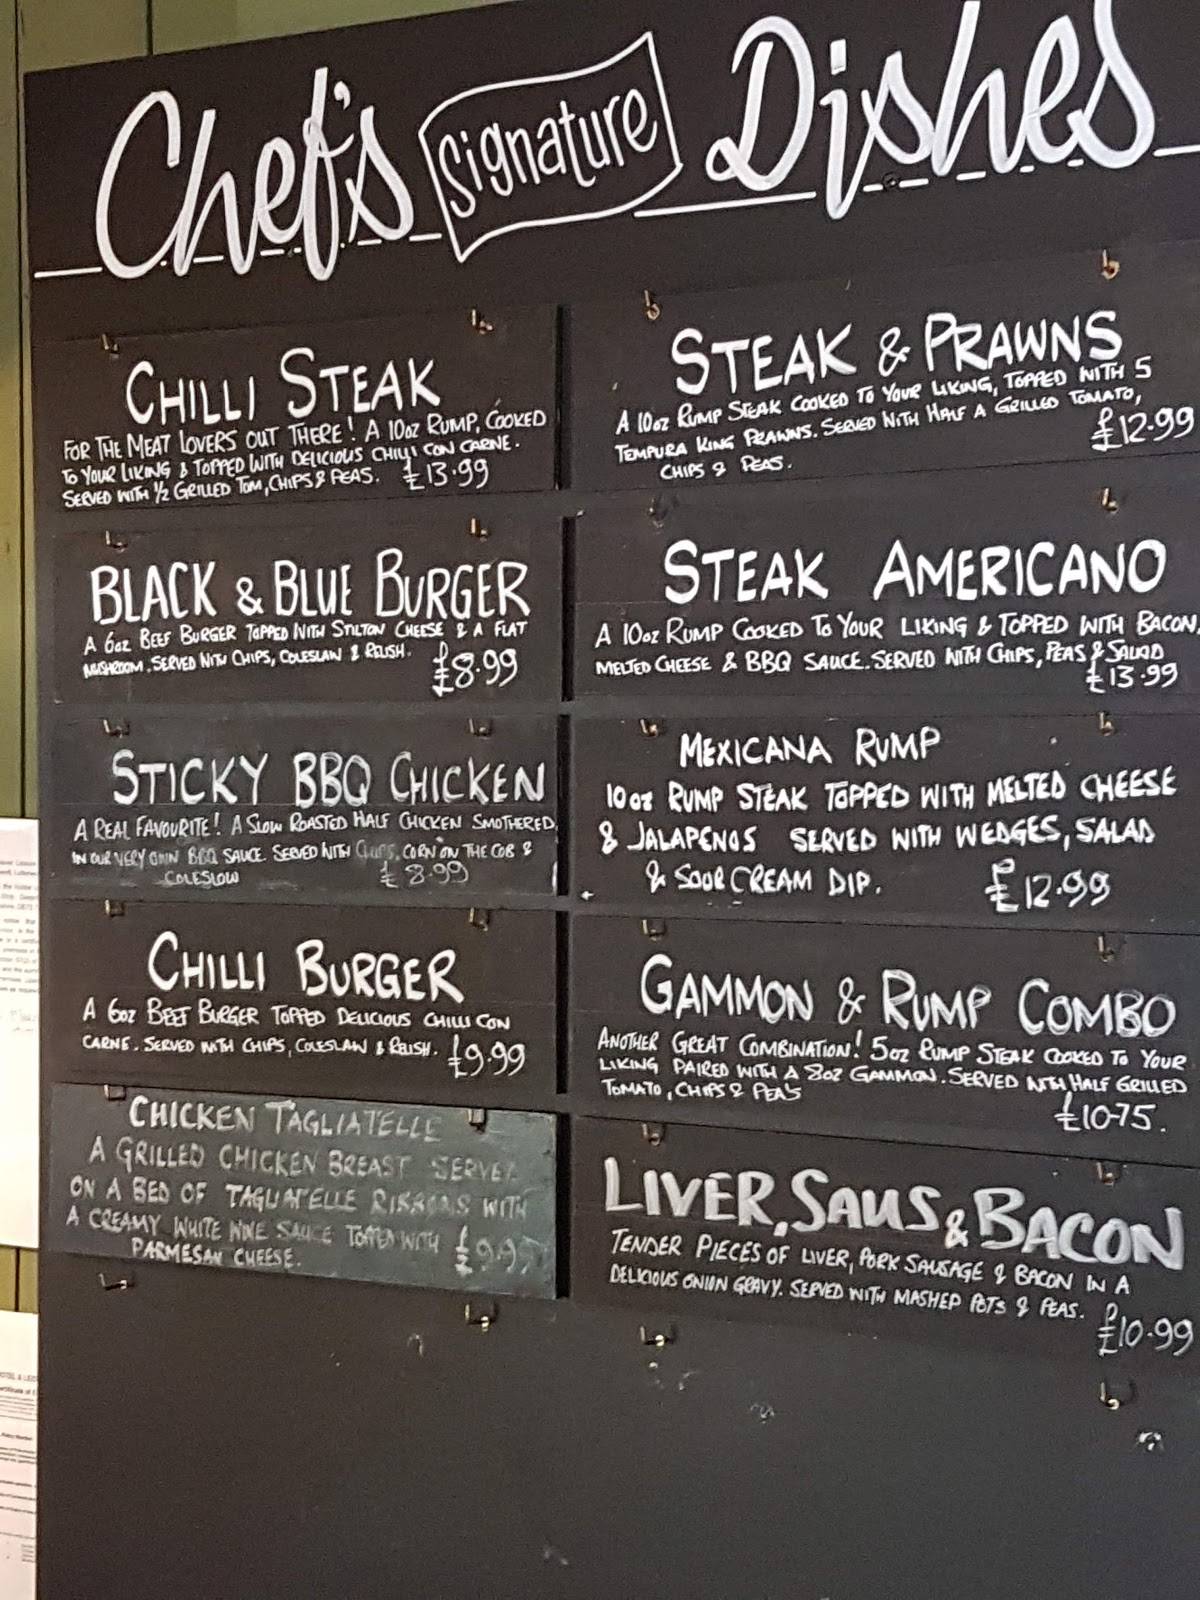 Chef's Signature Dishes
CHILLI STEAK
FOR THE MEAT LOVERS OUT THERE! A 10oz RUMP, COOKED
TO YOUR LIKING & TOPPED WITH DELICIOUS CHILLI CON CARNE.
SERVED WITH 1/2 GRILLED TOM, CHIPS & PEAS. £13.99
BLACK & BLUE BURGER
A 6oz BEEF BURGER TOPPED WITH STILTON CHEESE & A FLAT
MUSHROOM. SERVED WITH CHIPS, COLESLAW & RELISH. £8.99
STICKY BBQ CHICKEN
A REAL FAVOURITE! A SLOW ROASTED HALF CHICKEN SMOTHERED
IN OUR VERY OWN BBQ SAUCE. SERVED WITH CHIPS, CORN ON THE COB &
COLESLOW £8.99
CHILLI BURGER
A 6oz BEEF BURGER TOPPED DELICIOUS CHILLI CON
CARNE. SERVED WITH CHIPS, COLESLAW & RELISH. £9.99
CHICKEN TAGLIATELLE
A GRILLED CHICKEN BREAST SERVED
ON A BED OF TAGLIATELLE RIBBONS WITH
A CREAMY WHITE WINE SAUCE TOPPED WITH £9.95
PARMESAN CHEESE.
STEAK & PRAWNS
A 10oz RUMP STEAK COOKED TO YOUR LIKING, TOPPED WITH 5
TEMPURA KING PRAWNS. SERVED WITH HALF A GRILLED TOMATO,
CHIPS & PEAS. £12.99
STEAK AMERICANO
A 10oz RUMP COOKED TO YOUR LIKING & TOPPED WITH BACON,
MELTED CHEESE & BBQ SAUCE. SERVED WITH CHIPS, PEAS & SALAD
£13.99
MEXICANA RUMP
10oz RUMP STEAK TOPPED WITH MELTED CHEESE
& JALAPENOS SERVED WITH WEDGES, SALAD
& SOUR CREAM DIP. £12.99
GAMMON & RUMP COMBO
ANOTHER GREAT COMBINATION! 5oz RUMP STEAK COOKED TO YOUR
LIKING PAIRED WITH A 8oz GAMMON. SERVED WITH HALF GRILLED
TOMATO, CHIPS & PEAS
£10-75.
LIVER, SAUS & BACON
TENDER PIECES OF LIVER, PORK SAUSAGE & BACON IN A
DELICIOUS ONION GRAVY. SERVED WITH MASHED POTS & PEAS.
£10.99